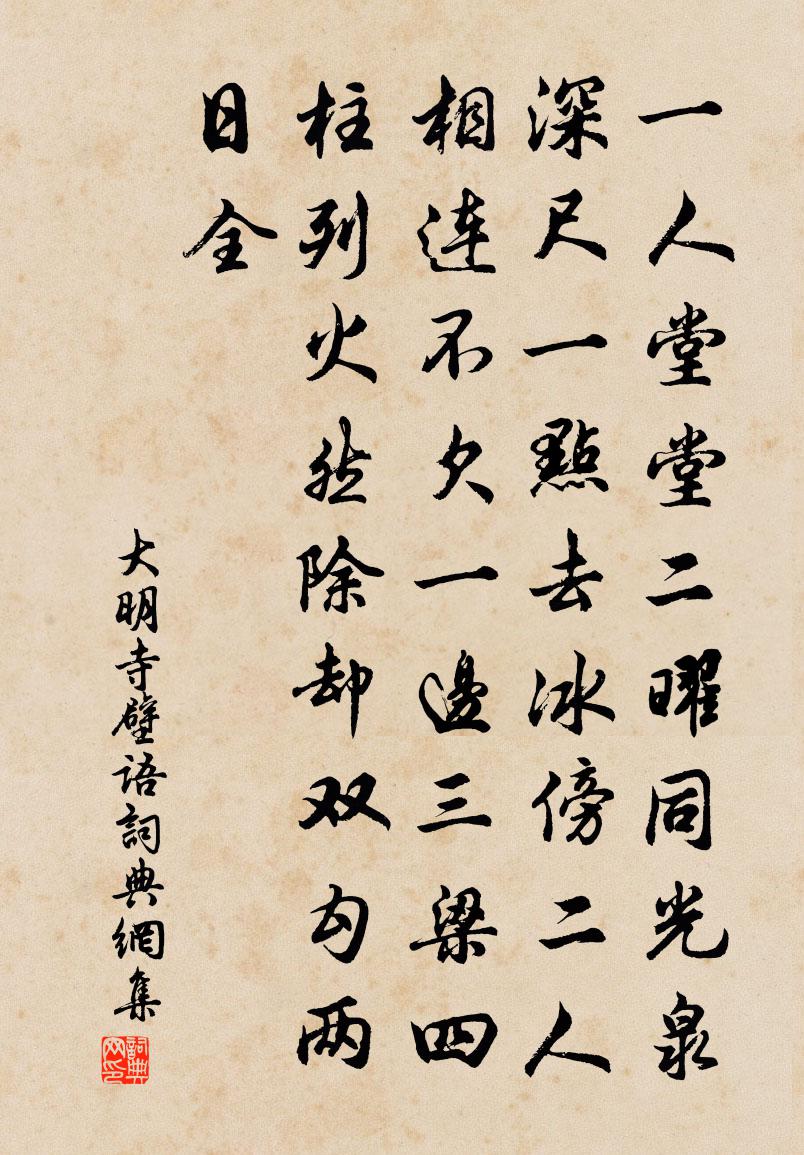 一人堂堂二曜同光泉
深尺一點去冰傍二人
相連不欠一邊三梁四
柱列火然除却双勾两
日全
大明寺壁语詞典網集
詞典
网印